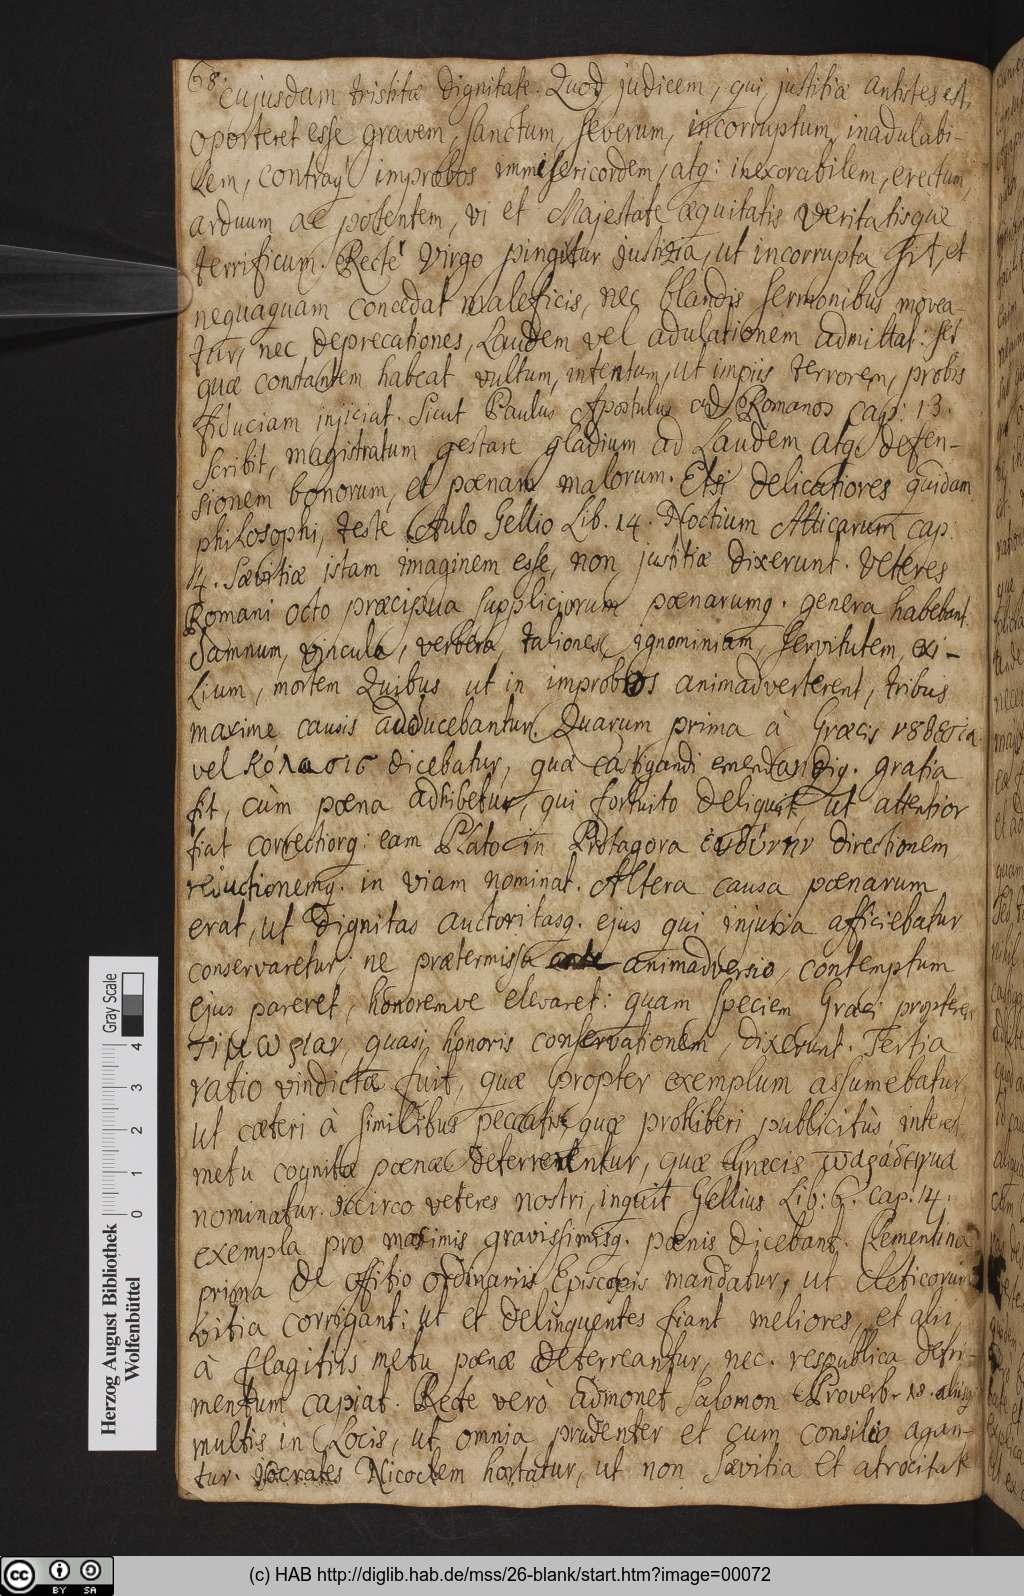 68.
cujusdam tristitiæ dignitate. Quod judicem, qui justitiæ antistes est,
oporteret esse gravem, sanctum, severum, incorruptum, inadulabi-
lem, contraq́ improbos immisericordem, atq: inexorabilem, erectum,
arduum ac potentem, vi et Majestate æquitatis veritatisque
terrificum. Rectè Virgo pingitur justitia, ut incorrupta sit, et
nequaquam concedat maleficis, nec blandis sermonibus movea-
tur, nec deprecationes, Laudem vel adulationem admittat: sed
quæ constantem habeat vultum, intentum, ut impiis terrorem, probis
fiduciam injiciat. Sicut Paulus Apostulus ad Romanos cap: 13.
scribit, magistratum gestare gladium ad Laudem atq; defen-
sionem bonorum, et pœnam malorum. Etsi delicatiores quidam
philosophi, teste Aulo Gellio Lib. 14. Noctium Atticarum cap:
4. Sævitiæ istam imaginem esse, non justitiæ dixerunt. Veteres
Romani octo præcipua suppliciorum pœnarumq. genera habebant.
damnum, vincula, verbera, taliones, ignominiam, servitutem, exi-
lium, mortem Quibus ut in improbos animadverterent, tribus
maxime causis adducebantur. Quarum prima à Græcis
vel κόλασις dicebatur, quæ castigandi emendandiq. gratia
fit, cùm pœna adhibetur, qui fortuito deliquit, ut attentior
fiat correctiorq: eam Plato in Protagora directionem
in viam nominat. Altera causa pœnarum
erat, ut dignitas auctoritasq. ejus qui injuria afficiebatur
conservaretur; ne prætermissa animadversio, contemptum
ejus pareret, honoremve elevaret: quam speciem Græci propterea
quasi honoris conservationem, dixerunt. Tertia
ratio vindictæ fuit, quæ propter exemplum assumebatur,
ut cæteri à similibus peccatis, quæ prohiberi publicitùs interest
metu cognitæ pœnæ deterrentur, quæ Græcis
nominatur. Idcirco veteres nostri, inquit Gellius Lib: 6. cap: 14.
exempla pro maximis gravissimisq. pœnis dicebant. Clementina
prima de offitio ordinariis Episcopis mandatur, ut cleticorum
vitia corrigant: ut et delinquentes fiant meliores, et alii,
à flagitiis metu pœnæ deterreantur, nec. respublica detri-
mentum capiat. Recte verò admonet Salomon Proverb. 18. aliisq
multis in Locis, ut omnia prudenter et cum consilio agan-
tur. Isocrates Nicoclem hortatur, ut non sævitia et atrocitate
Gray Scale
0 1 2 3 4
Herzog August Bibliothek
Wolfenbüttel
cc BY SA
(c) HAB http://diglib.hab.de/mss/26-blank/start.htm?image=00072